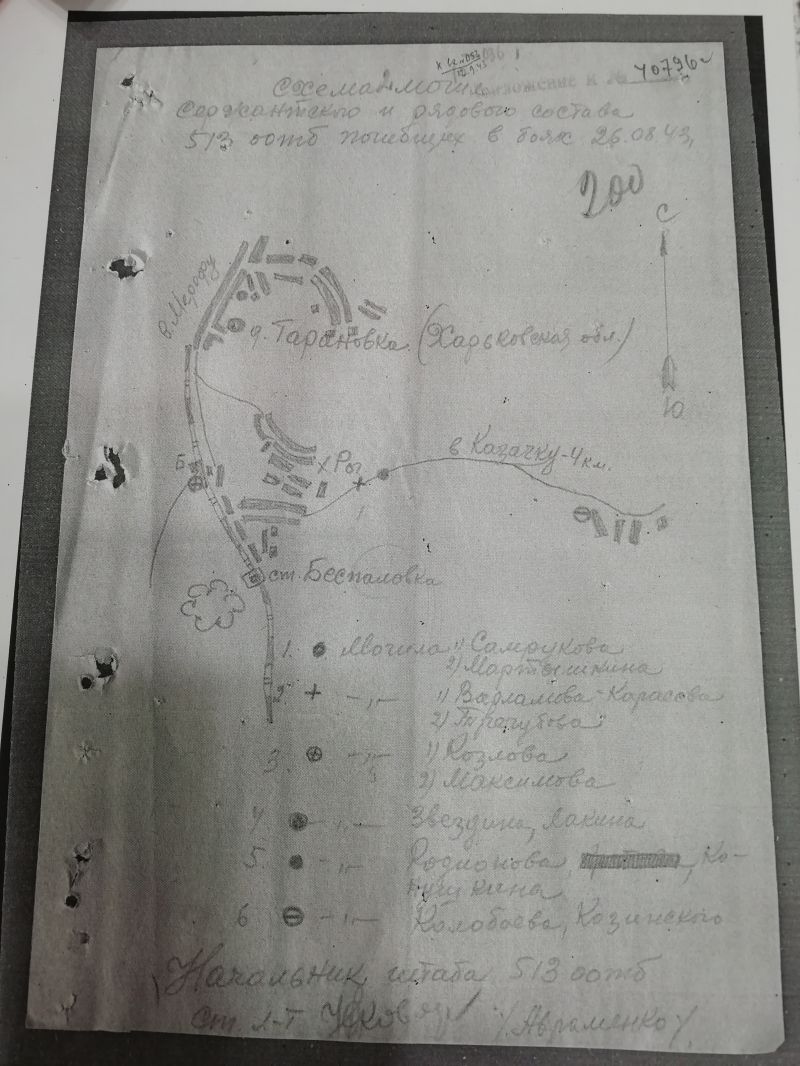 Приложение к № 40796
Схема могил
Сержантского и рядового состава
513 оотб погибших в боях 26.08.43,
200
С
в. Мерефу
д. Тарановка (Харьковская обл.)
Ю
в Казачку-4 км.
Б
х Рог
1
ст. Беспаловка
1. Могила 1) Самрукова
2) Мартышкина
2 + -,,- 1) Варламова-Карасева
2) Трегубова
3 -,,- 1) Козлова
2) Максимова
4 -,,- Звездина, Лакина
5 -,,- Родионова, Ко-
кушкина
6 -,,- Колобаева, Козинского
Начальник штаба 513 оотб
ст. л-т /Авраменко/